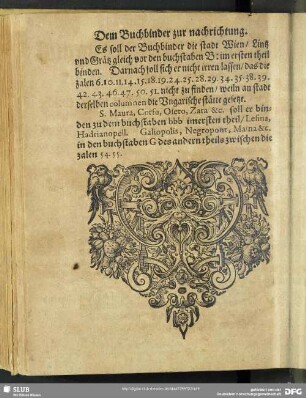 Dem Buchbinder zur nachrichtung.
Es soll der Buchbinder die stadt Wien/ Lintz
vnd Grätz gleich vor den buchstaben B: im ersten theil
binden. Darnach soll sich er nicht irren lassen/ das die
zalen 6.10.11.14.15.18.19.24.25.28.29.34.35.38.39.
42.43.46.47.50.51. nicht zu finden/ weiln an stadt
derselben columnen die Vngarische stätte gesetzt.
S. Maura, Corfu, Osero, Zara &c. soll er bin-
den zu dem buchstaben bbb im ersten theil/ Lesina,
Hadrianopell. Galiopolis, Negropont, Maina &c.
in den buchstaben G des andern theils zwischen die
zalen 54.55.
SLUB
DFG